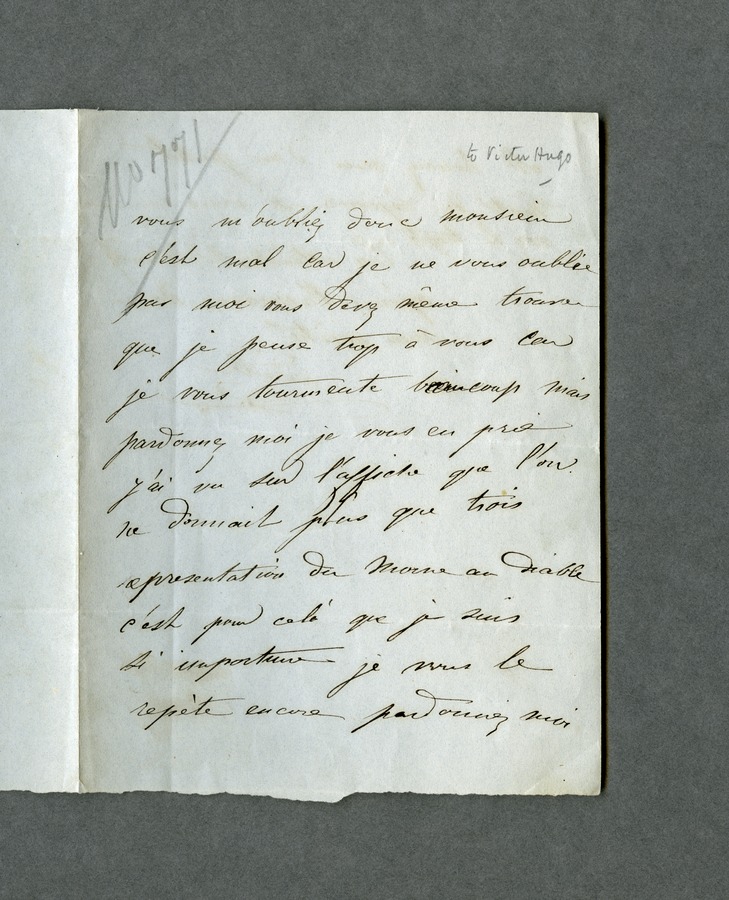 No 771
to Victor Hugo
vous m'oubliez donc monsieur
c'est mal car je ne vous oublie
pas moi vous devez même trouver
que je pense trop à vous car
je vous tourmente beaucoup mais
pardonnez moi je vous en prie
j'ai vu sur l'affiche que l'on
ne donnait plus que trois
representation du Moine au Diable
c'est pour celà que je suis
si importune je vous le
repète encore pardonnez moi